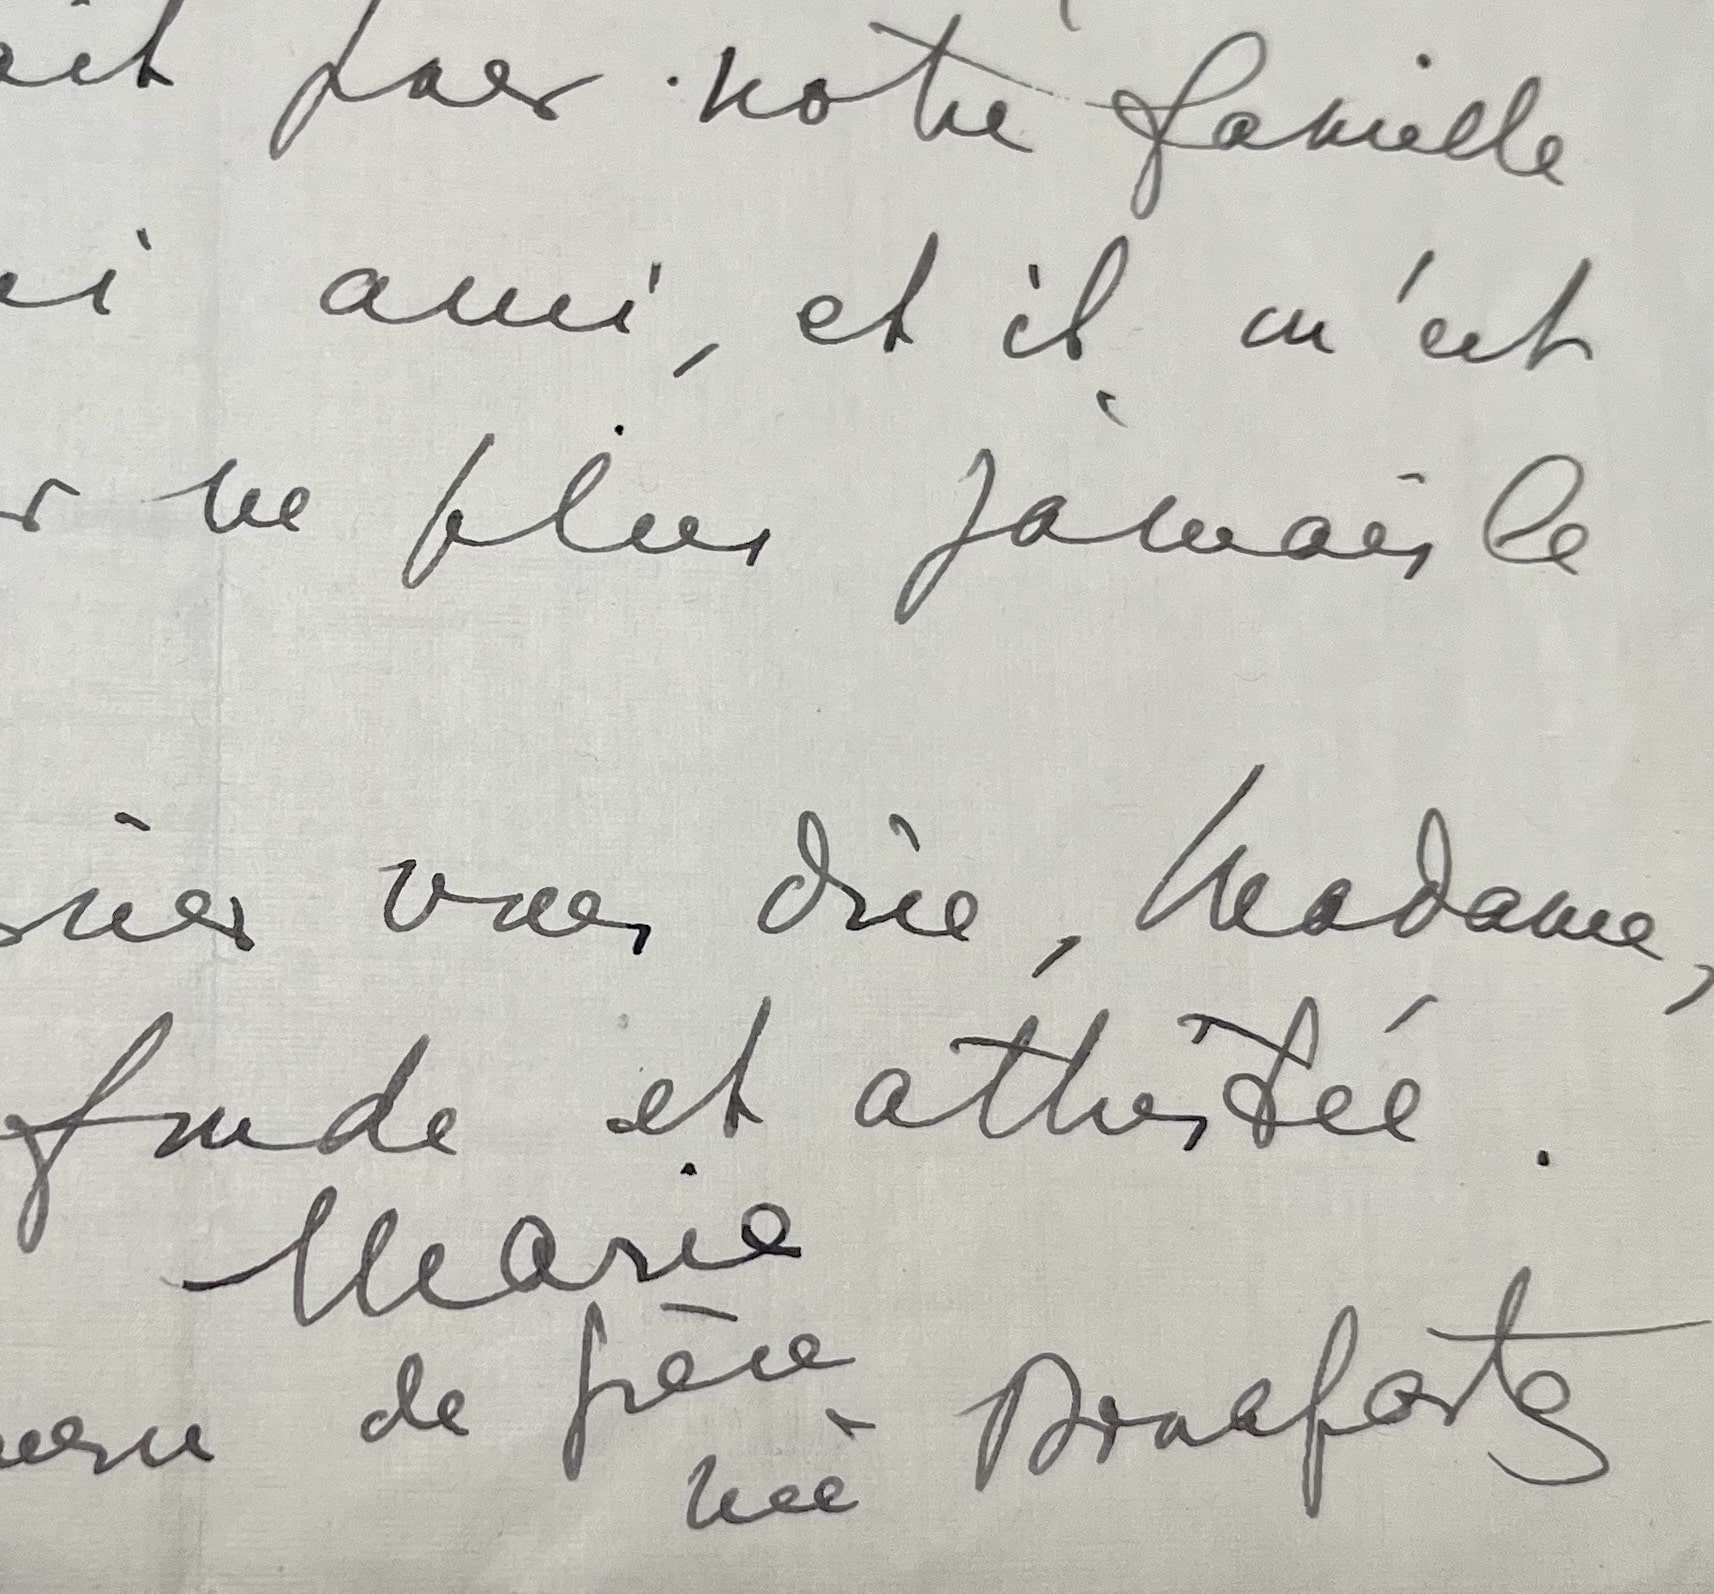 ait pour notre famille
ami, et il m'est
ne plus jamais le
vous dire, Madame,
fonde et attristée.
Marie
de Grèce
née Bonaparte